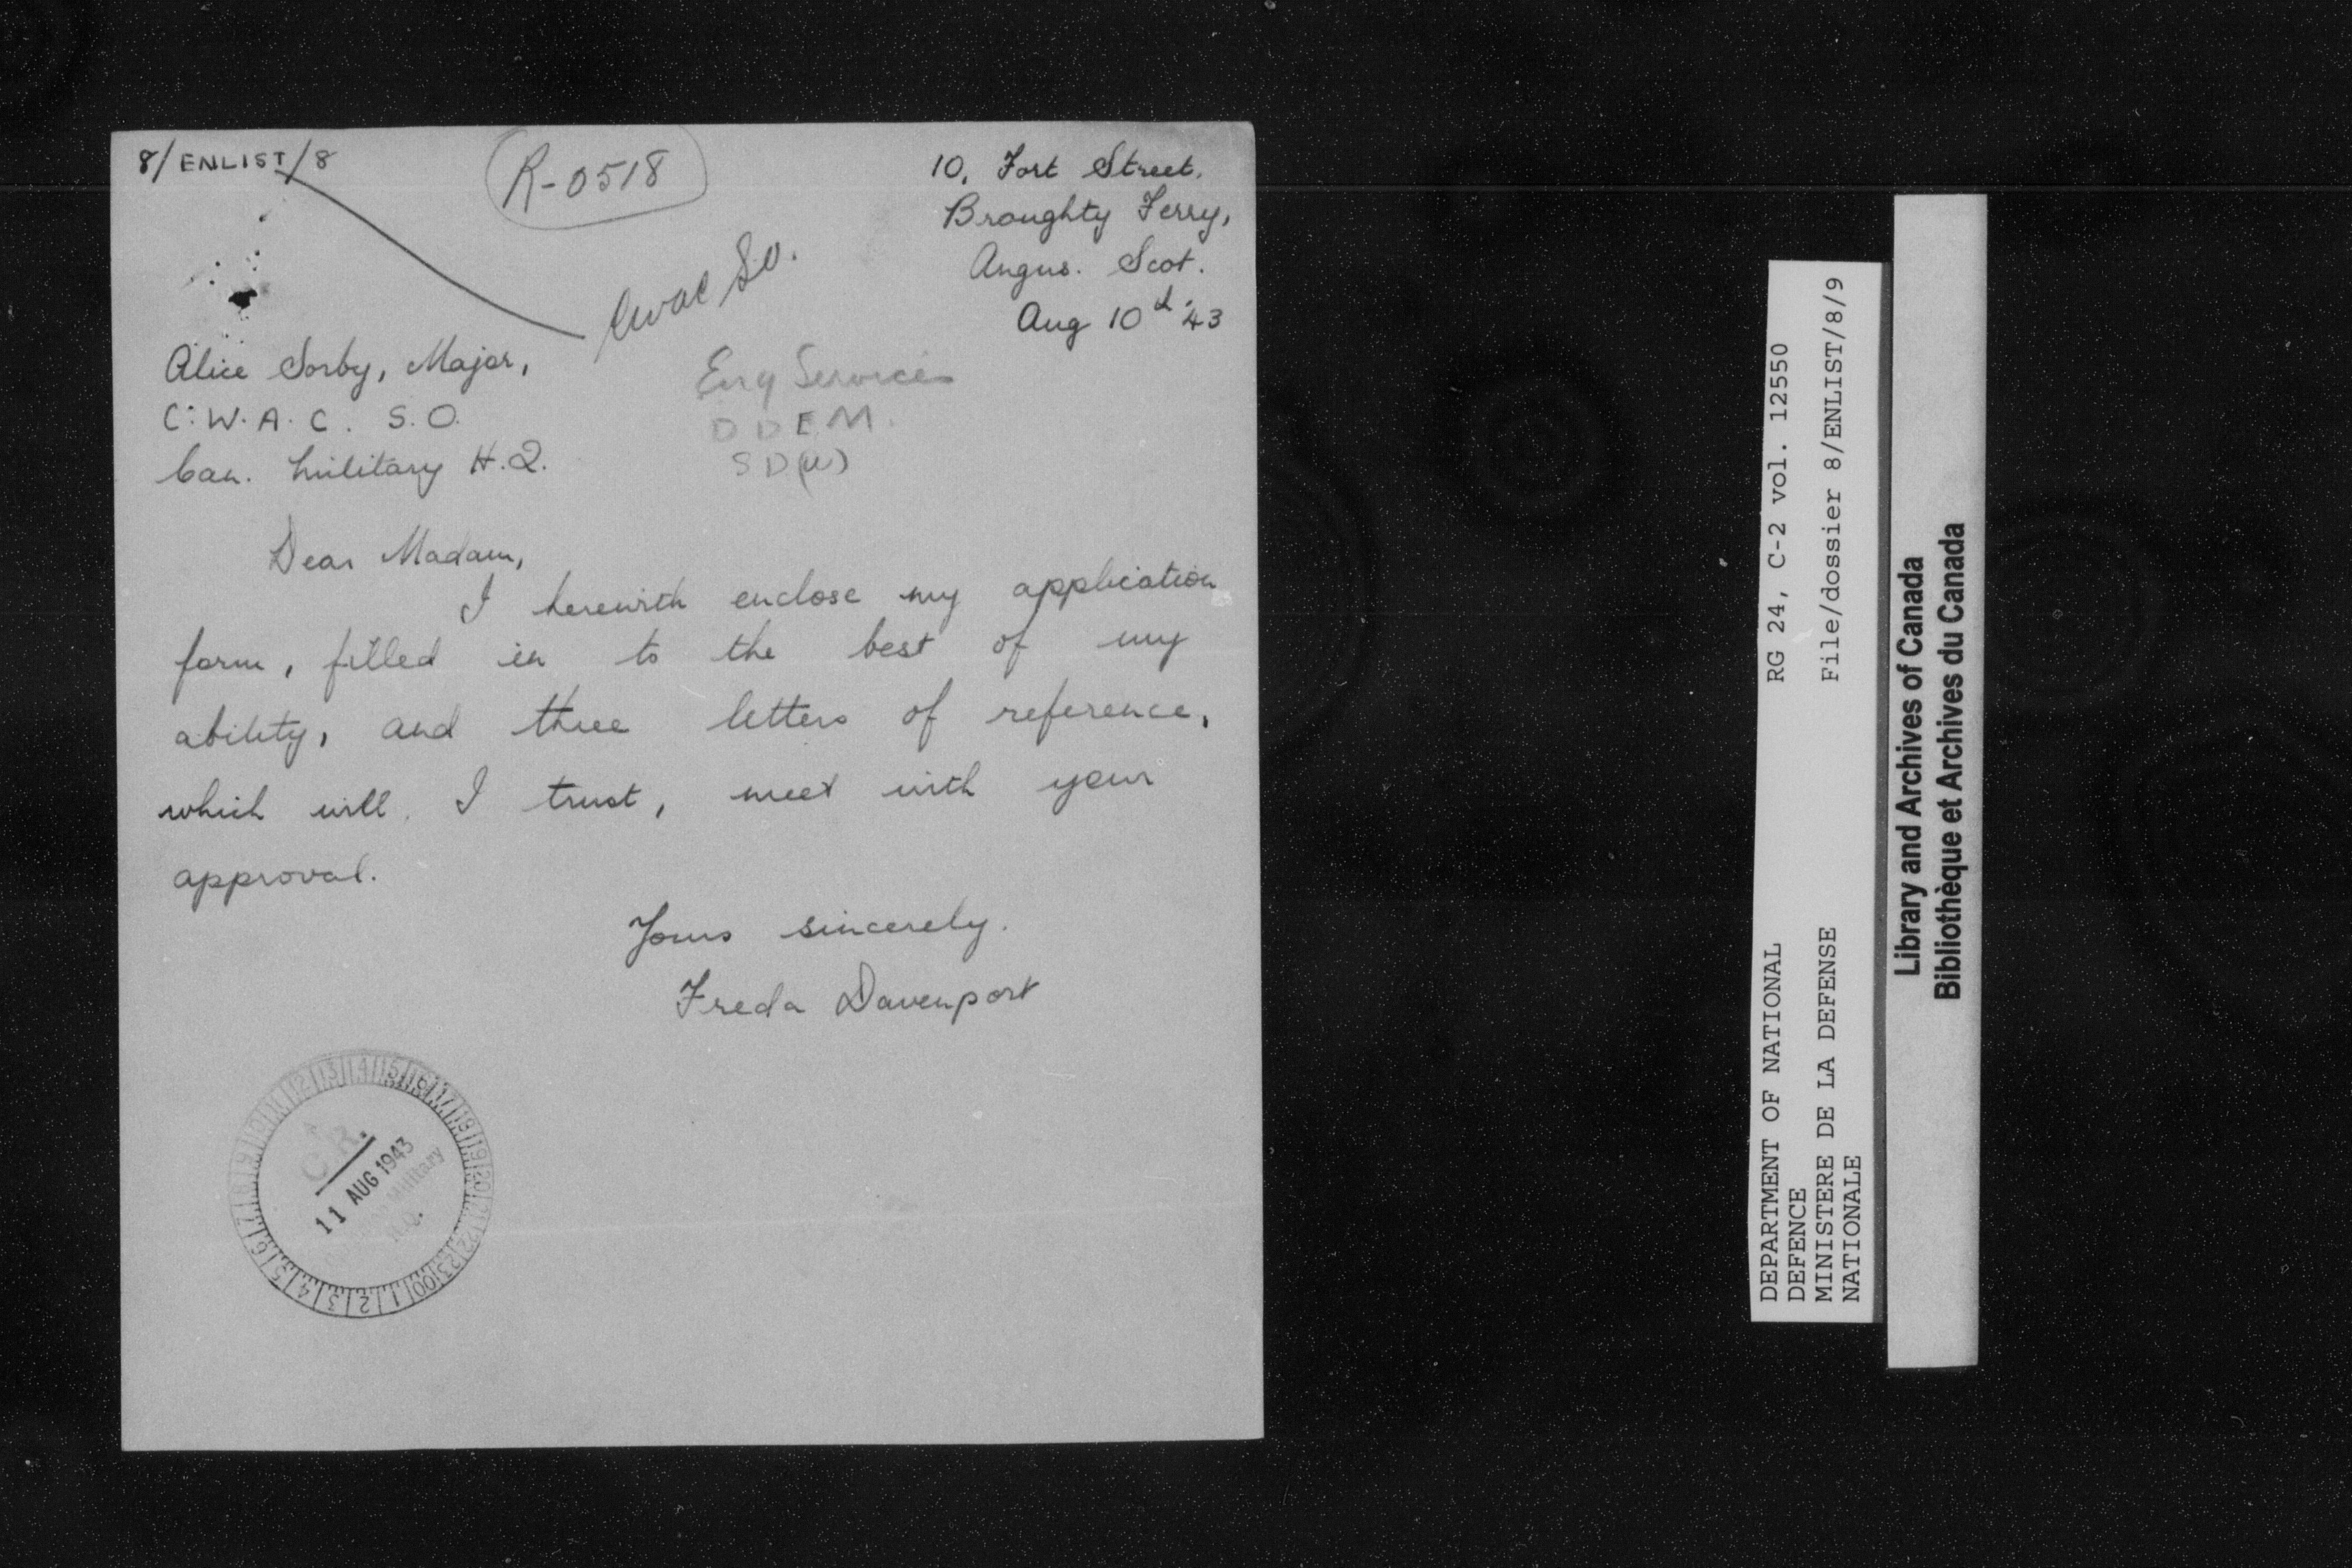 8/ENLIST/8
R-0518
10, Fort Street.
Broughty Ferry,
Angus. Scot.
Aug 10th '43
Cwac SO.
Alice Sorby, Major,
C.W.A.C. S.O.
Can. Military H.Q.
Eng Services
D D E M.
S D (W)
Dear Madam,
I herewith enclose my application
form, filled in to the best of my
ability, and three letters of reference,
which will, I trust, meet with your
approval.
Yours sincerely.
Freda Davenport
C.R.
11 AUG 1943
Military
H.Q.
RG 24, C-2 vol. 12550
File/dossier 8/ENLIST/8/9
DEPARTMENT OF NATIONAL
DEFENCE
MINISTERE DE LA DEFENSE
NATIONALE
Library and Archives of Canada
Bibliothèque et Archives du Canada